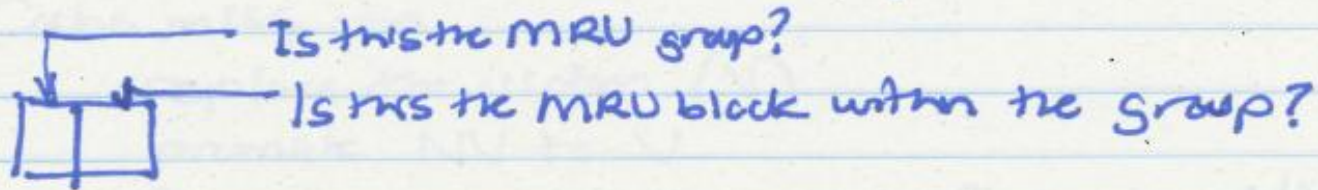 Is this the MRU group?
Is this the MRU block within the group?